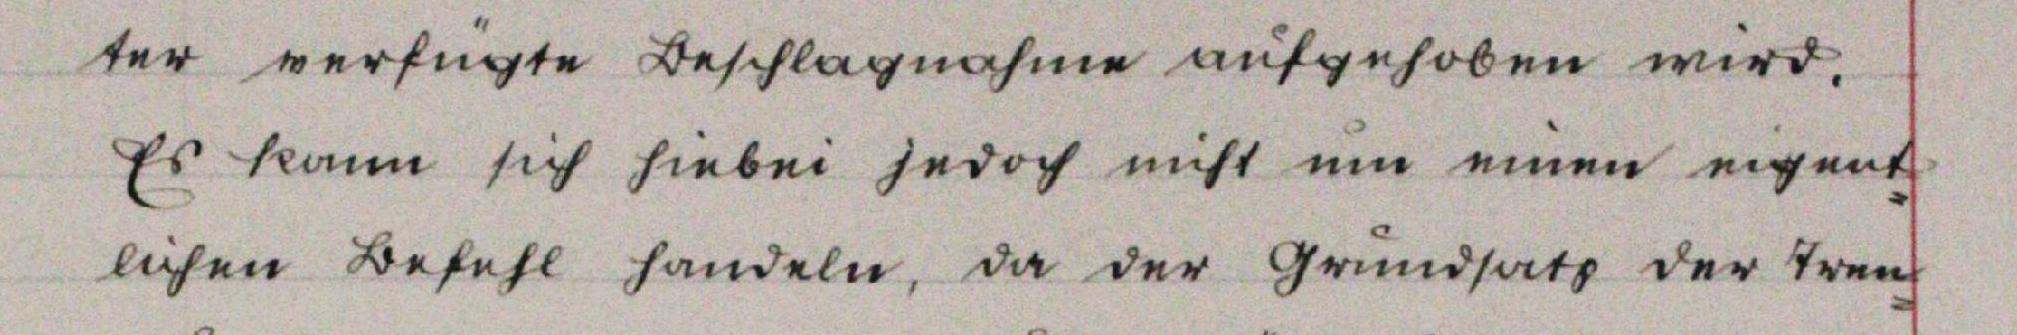 ter verfügte Beschlagnahme aufgehoben wird.
Es kann sich hiebei jedoch nicht um einen eigent=
lichen Befehl handeln, da der Grundsatz der Tren=